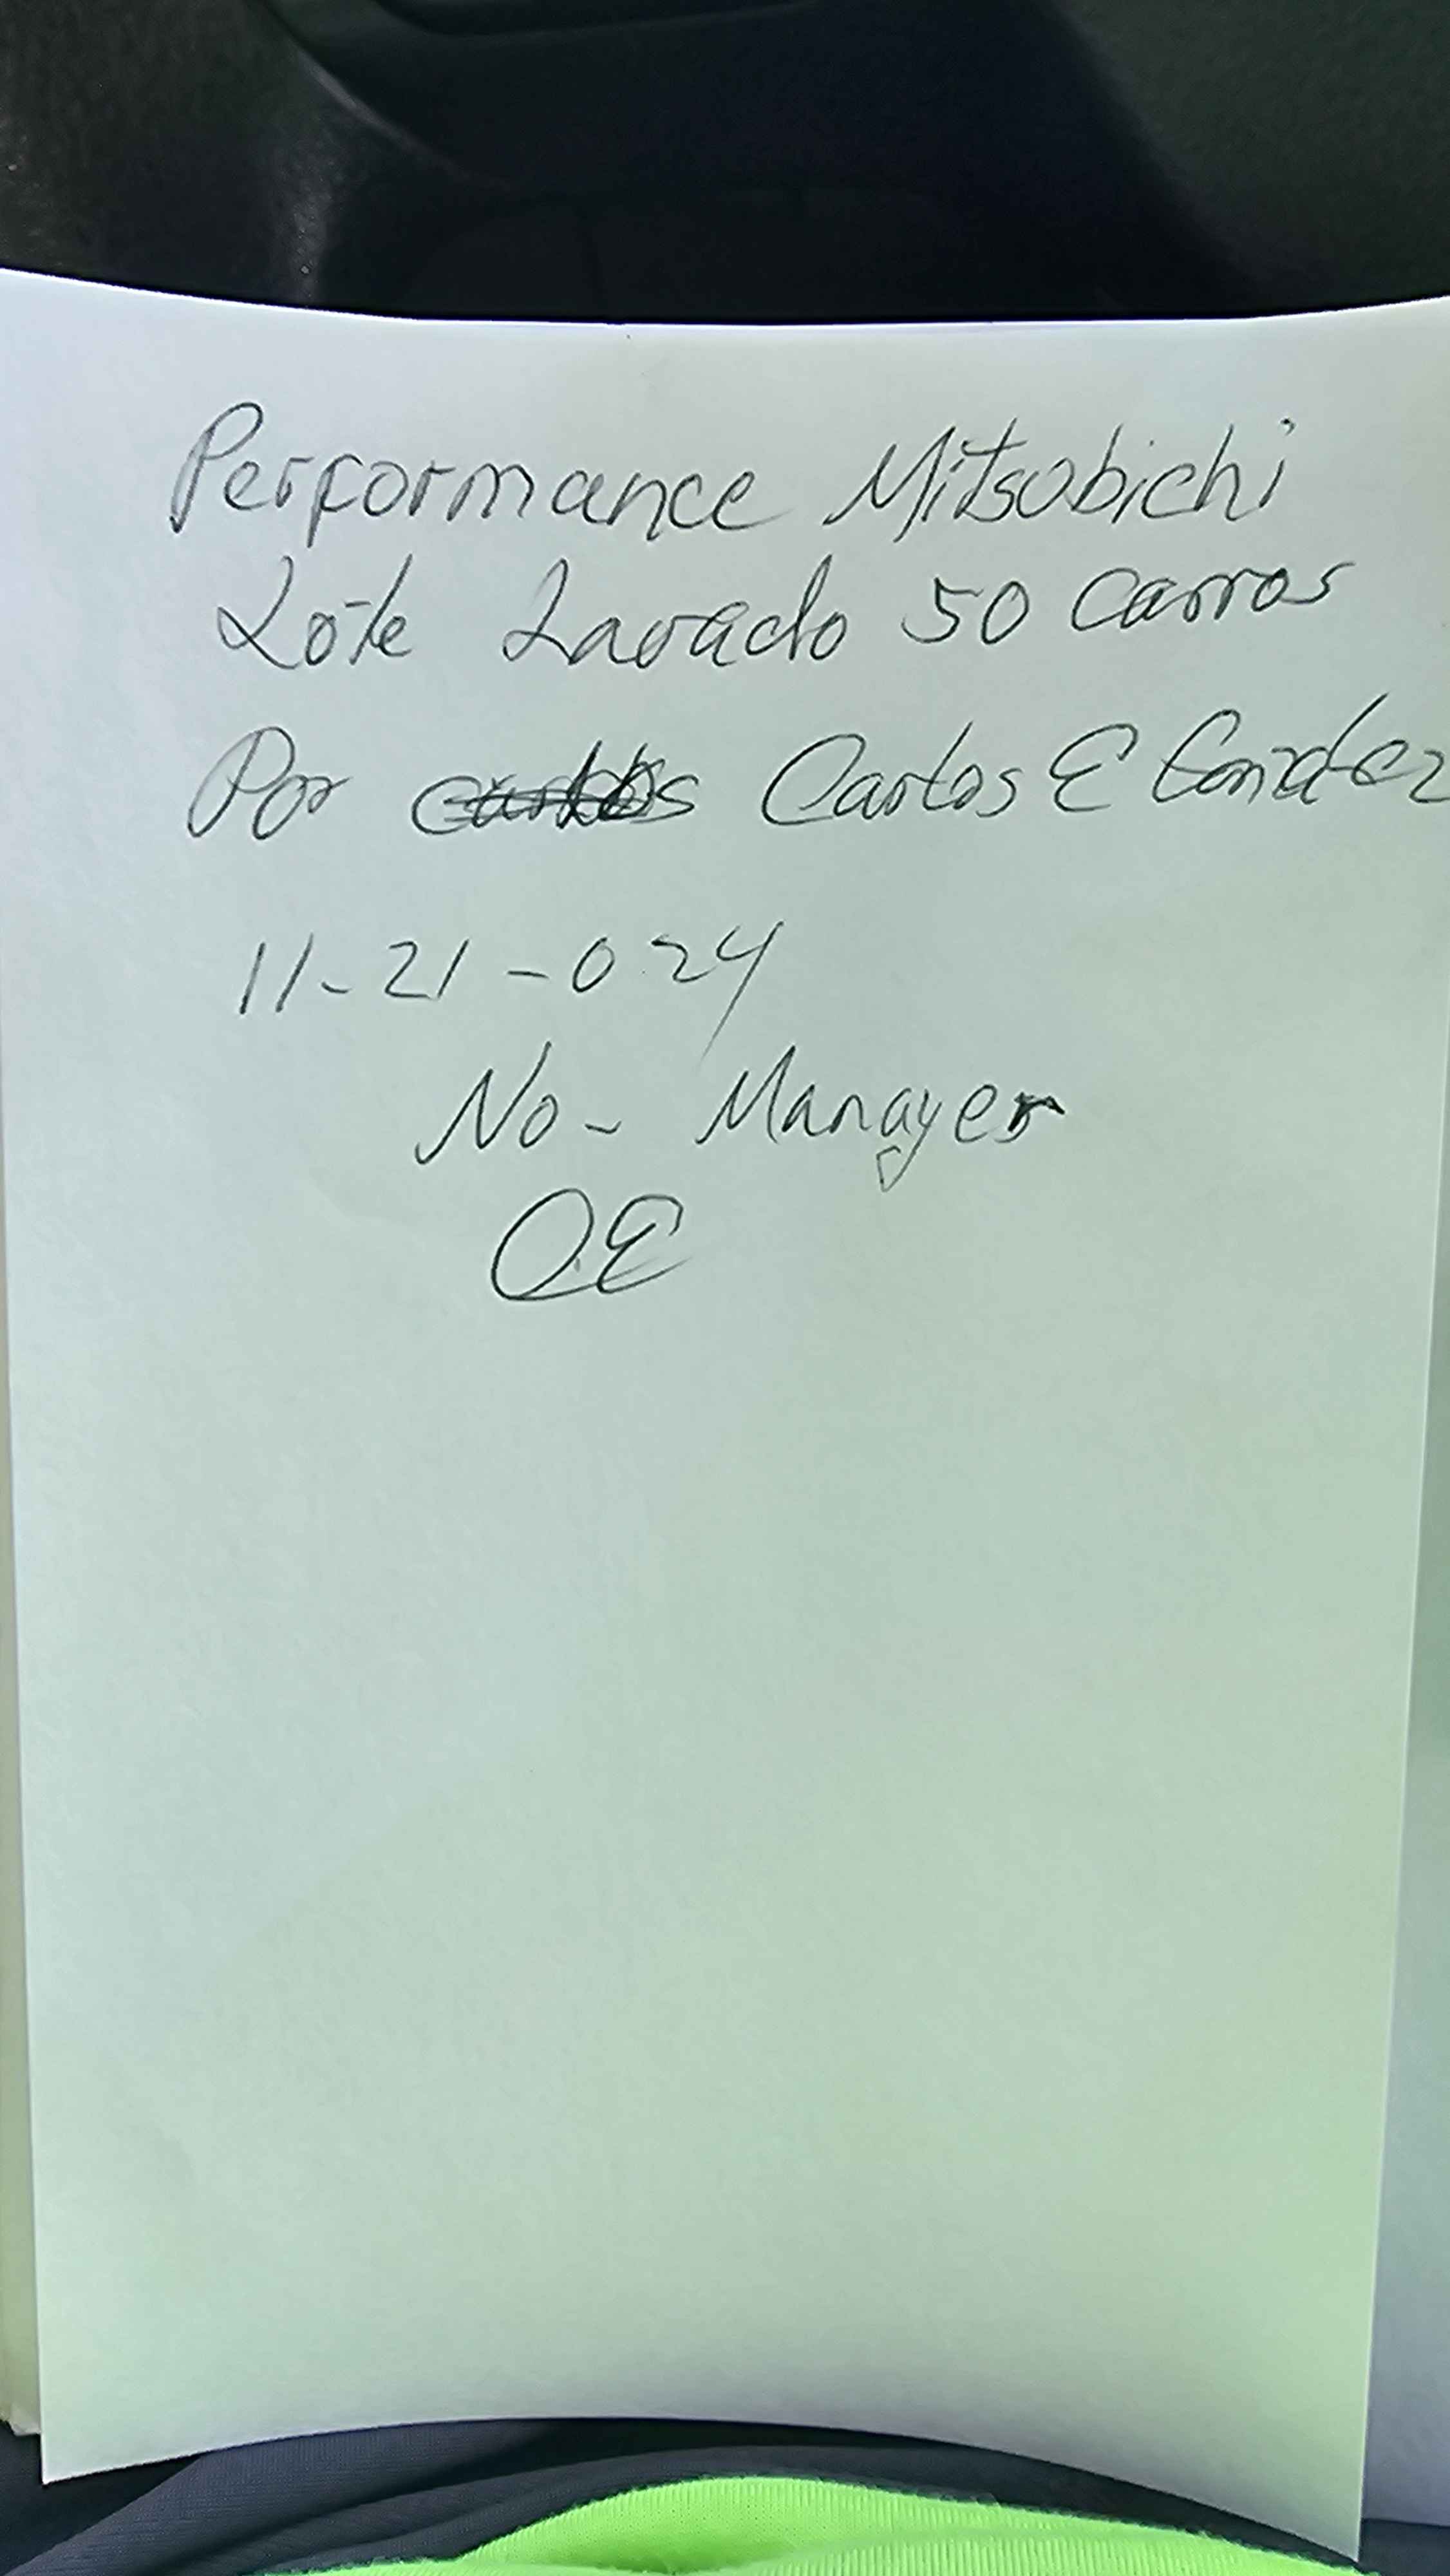 Performance Mitsobichi
Lote Lavado 50 Carros
Por Carlos E Gonzalez
11-21-024
No- Manager